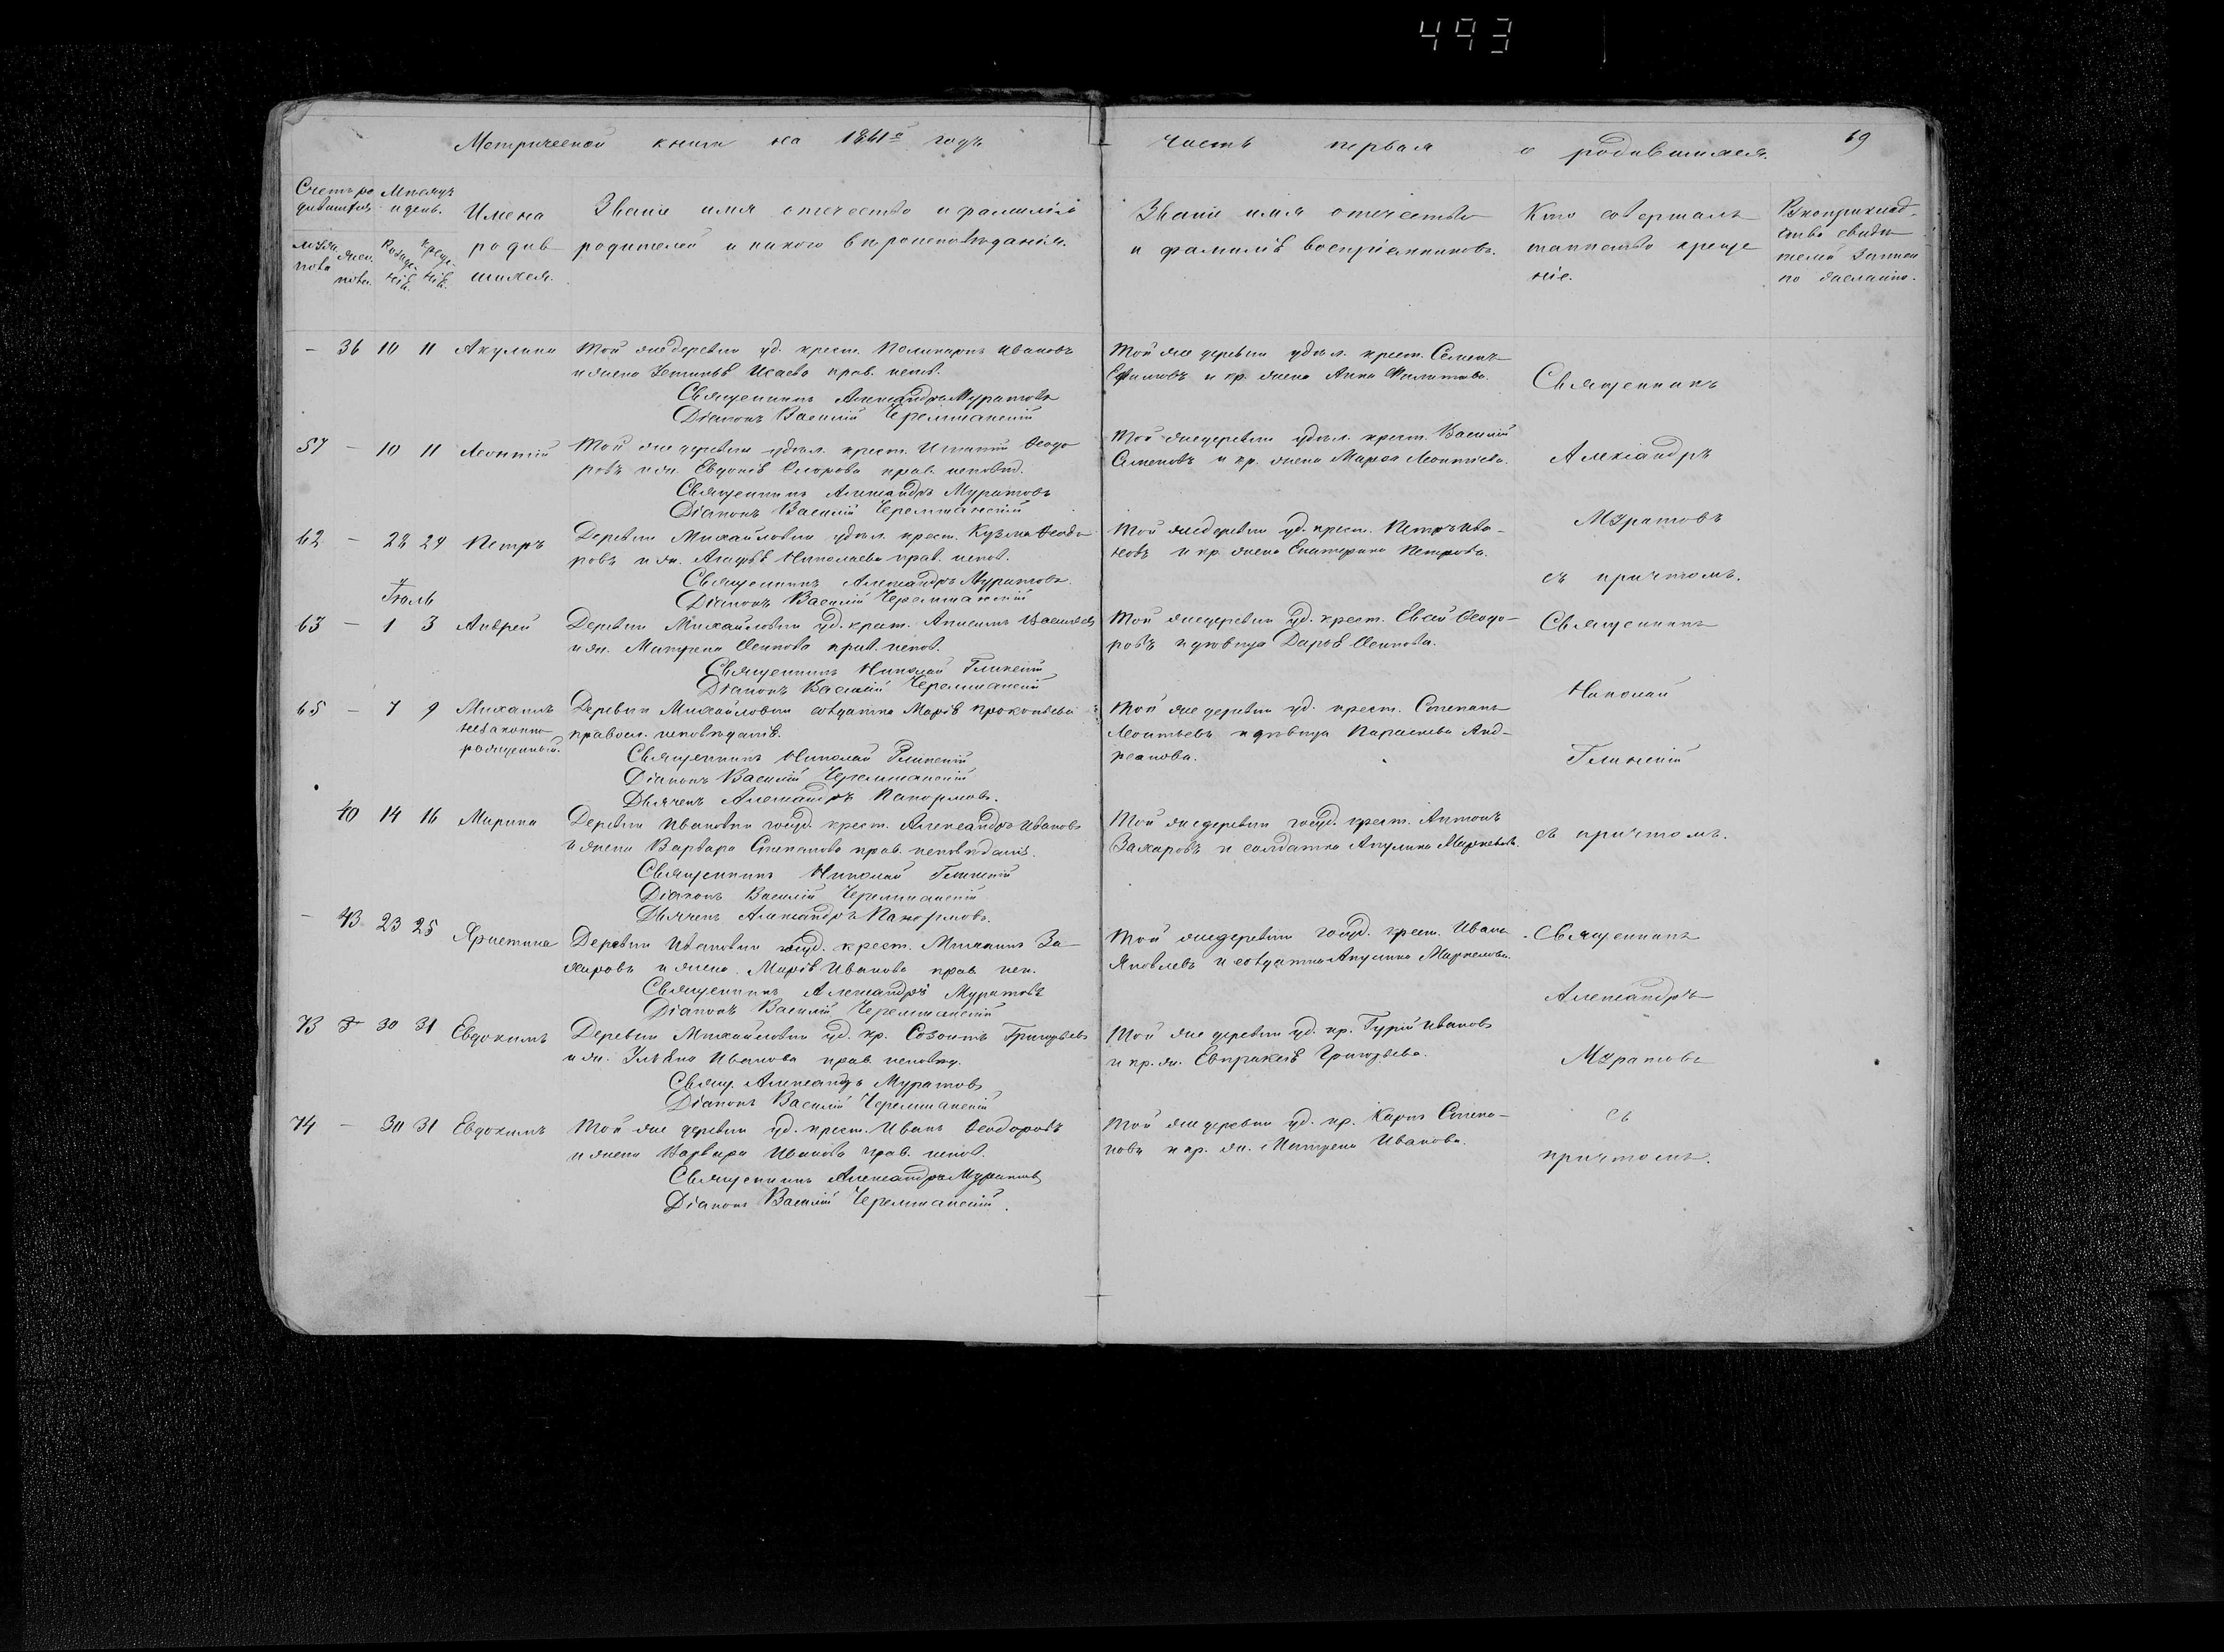 493
Метрической книги на 1861й годъ
часть первая о родившихся.
69
Счетъ родившихся
Мѣсяцъ и день.
Имена родившихся.
Званіе имя отечество и фамилія
родителей и какого вѣроисповѣданія.
Званіе имя отечество
и фамилія воспріемниковъ.
Кто совершалъ
таинство крещеніе.
Рукоприкладство свидѣтелей записи
по желанію.
— 36 10 11 Акулина
Той же деревни уд. крест. Поликарпъ Ивановъ
и жена Устинья Исаева прав. испов.
Священникъ Александръ Муратовъ
Діаконъ Василій Черемшанскій
Той же деревни удѣл. крест. Семенъ
Ефимовъ и кр. жена Анна Филипова.
Священникъ
57 — 10 11 Леонтій
Той же деревни удѣл. крест. Игнатій Ѳеодо
ровъ и ж. Евдокія Егорова прав. исповѣд.
Священникъ Александръ Муратовъ
Діаконъ Василій Черемшанскій
Той же деревни удѣл. крест. Василій
Семеновъ и кр. жена Марѳа Леонтіева.
Александръ
62 — 28 29 Петръ
Деревни Михайловки удѣл. крест. Кузма Ѳеодо
ровъ и ж. Агафья Николаева прав. испов.
Священникъ Александръ Муратовъ.
Діаконъ Василій Черемшанскій
Той же деревни уд. крест. Петръ Ива-
новъ и кр. жена Екатерина Петрова.
Муратовъ
съ причтомъ.
Іюль
63 — 1 3 Андрей
Деревни Михайловки уд. крест. Анисимъ Васильевъ
и ж. Матрена Осипова прав. испов.
Священникъ Николай Глинскій
Діаконъ Василій Черемшанскій
Той же деревни уд. крест. Евсей Ѳеодо-
ровъ и дѣвица Дарья Осипова.
Священникъ
65 — 7 9 Михаилъ
незаконно
рожденный.
Деревни Михайловки солдатка Марія Прокопьева
правосл. исповѣданія.
Священникъ Николай Глинскій
Діаконъ Василій Черемшанскій
Дьячекъ Александръ Панормовъ.
Той же деревни уд. крест. Степанъ
Леонтьевъ и дѣвица Параскева Анд-
реанова.
Николай
Глинскій
40 14 16 Марина
Деревни Ивановки госуд. крест. Александръ Ивановъ
и жена Варвара Степанова прав. исповѣданія.
Священникъ Николай Глинскій
Діаконъ Василій Черемшанскій
Дьячекъ Александръ Панормовъ.
Той же деревни госуд. крест. Антонъ
Захаровъ и солдатка Акулина Маркелова
съ причтомъ.
— 43 23 25 Христина
Деревни Ивановки госуд. крест. Михаилъ За-
харовъ и жена Марія Иванова прав. исп.
Священникъ Александръ Муратовъ
Діаконъ Василій Черемшанскій
Той же деревни госуд. крест. Иванъ
Яковлевъ и солдатка Акулина Маркелова.
Священникъ
Александръ
73 — 30 31 Евдокимъ
Деревни Михайловки уд. кр. Созонтъ Григорьевъ
и ж. Ульяна Иванова прав. исповѣд.
Свящ. Александръ Муратовъ
Діаконъ Василій Черемшанскій
Той же деревни уд. кр. Гурій Ивановъ
и кр. ж. Евпраксія Григорьева.
Муратовъ
74 — 30 31 Евдокимъ
Той же деревни уд. крест. Иванъ Ѳеодоровъ
и жена Варвара Иванова прав. испов.
Священникъ Александръ Муратовъ
Діаконъ Василій Черемшанскій.
Той же деревни уд. кр. Карпъ Степа-
новъ и кр. ж. Матрена Иванова.
съ
причтомъ.